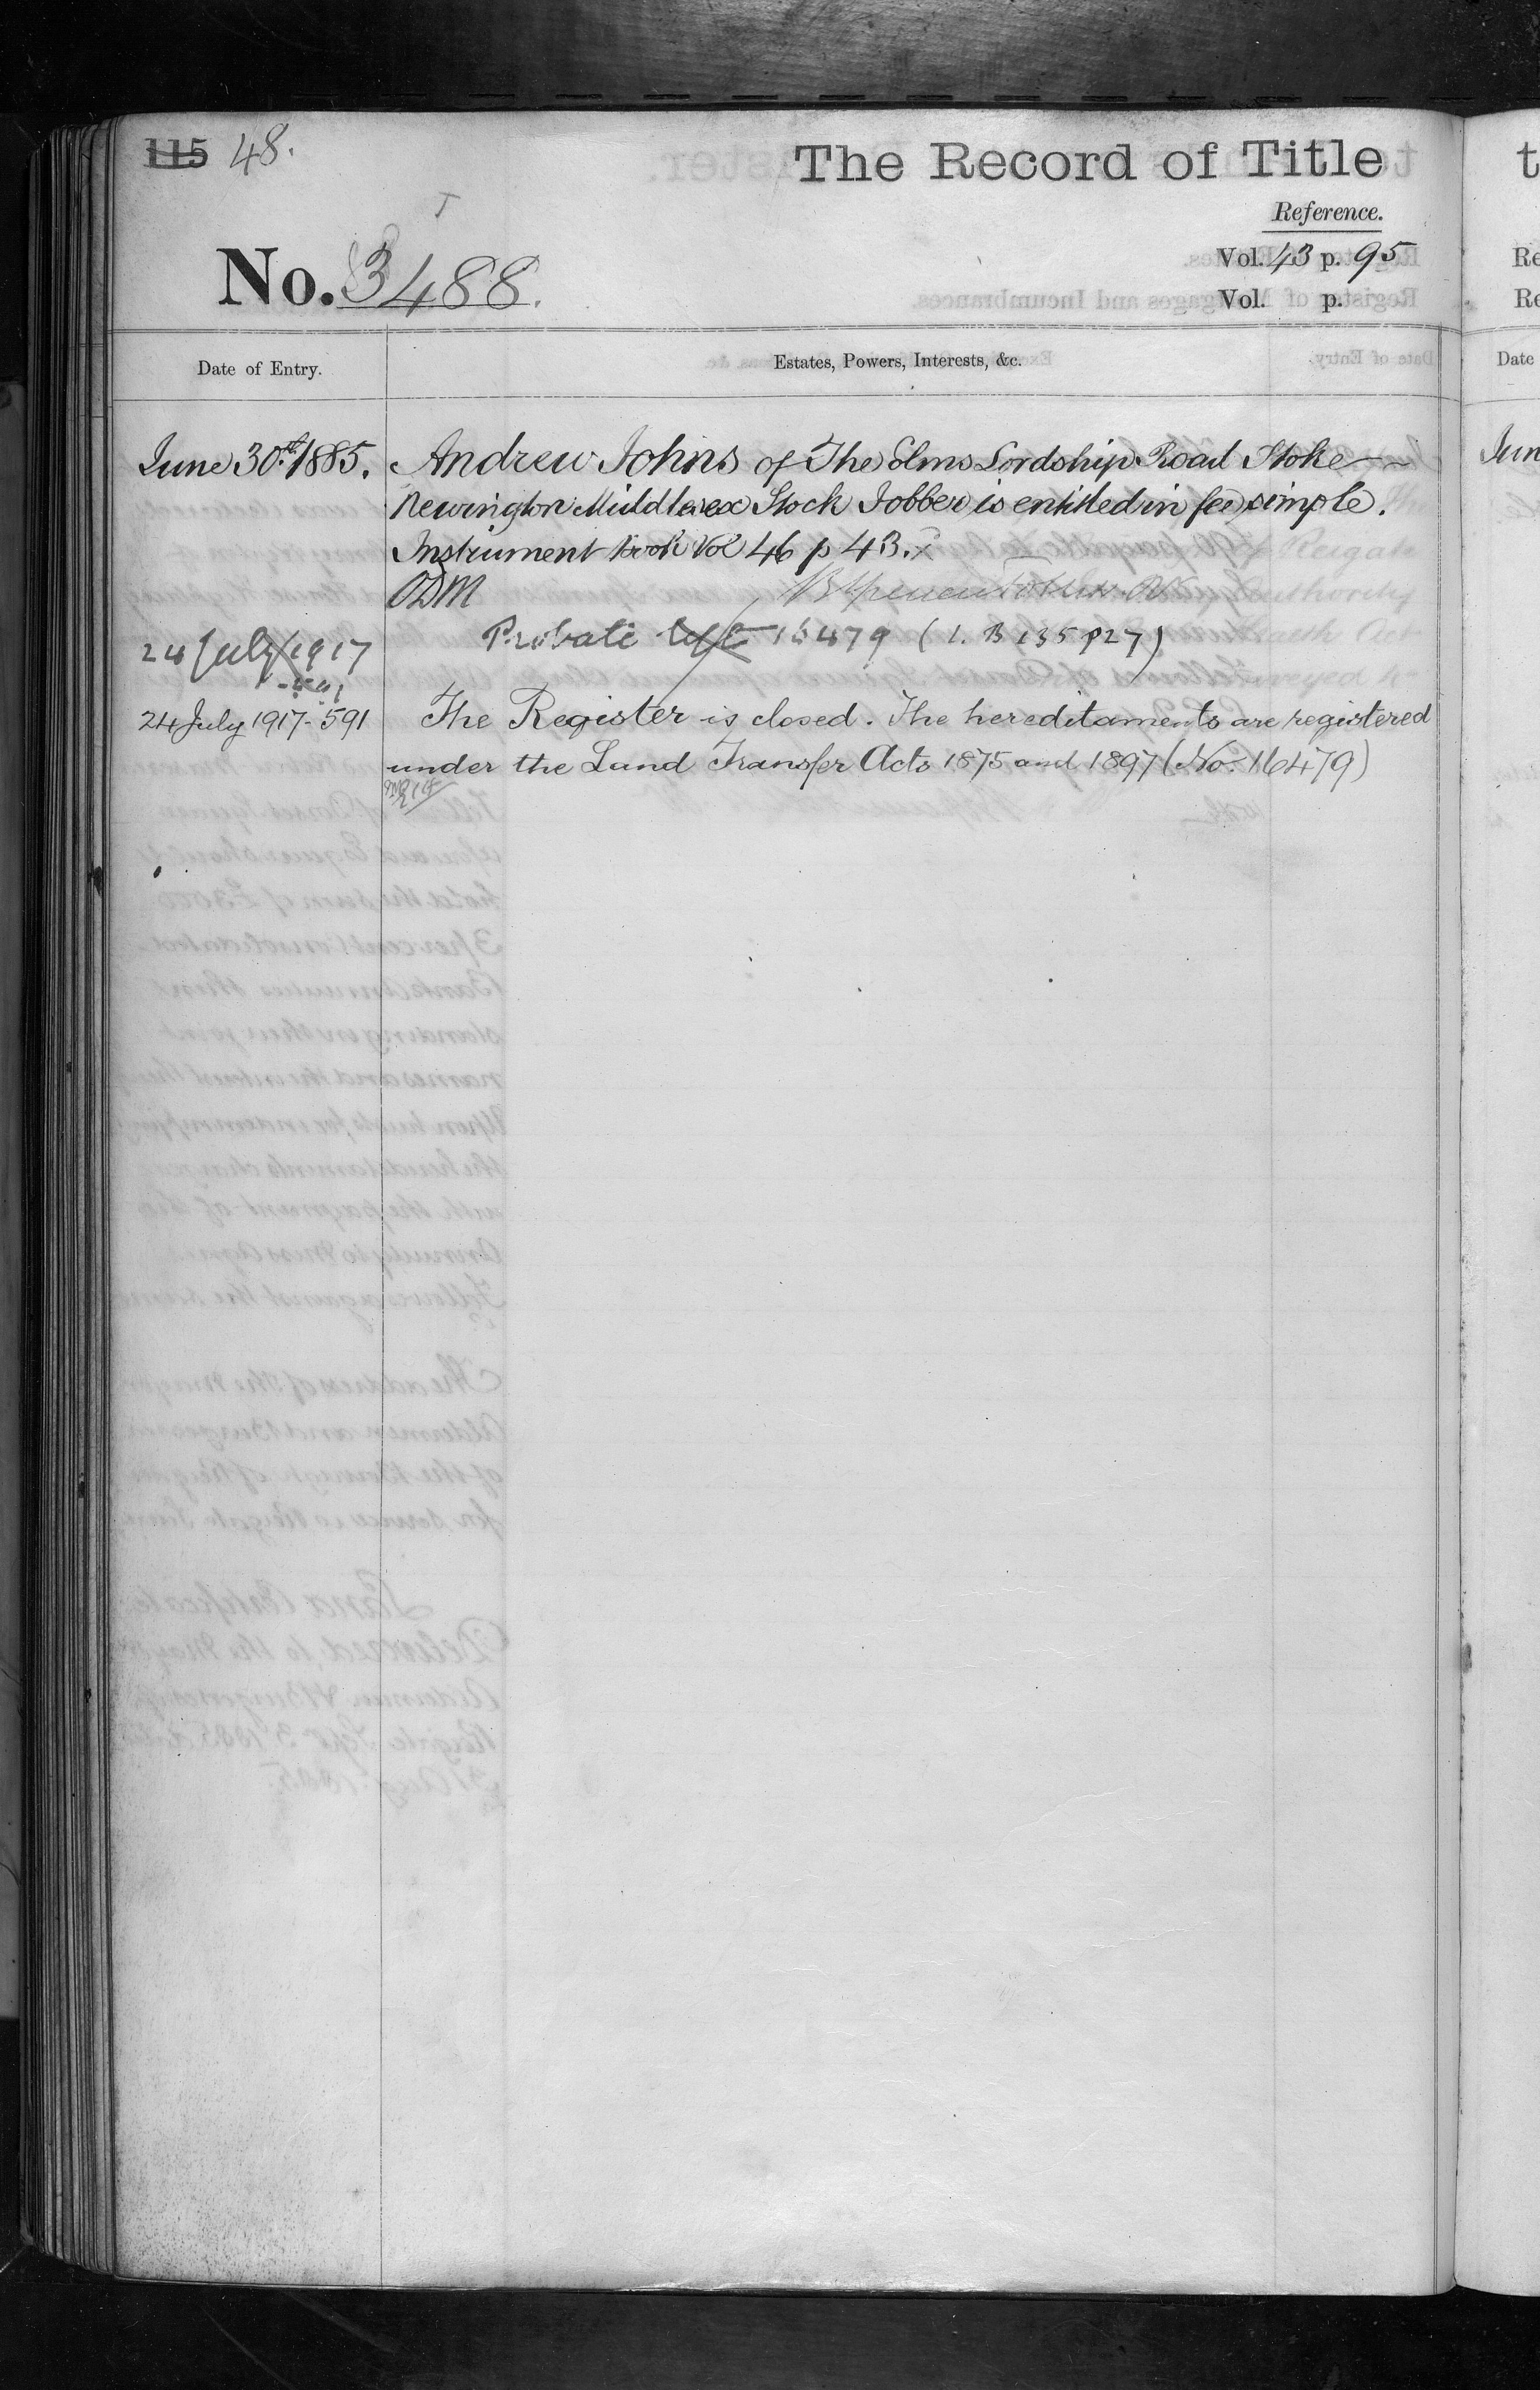 115 48.
The Record of Title
Reference.
No. 3488.
Vol. 43 p. 95
Vol. p.
Date of Entry.
Estates, Powers, Interests, &c.
June 30th 1885. Andrew Johns of The Elms Lordship Road Stoke
Newington Middlesex Stock Jobber is entitled in fee simple.
Instrument book Vol 46 p 43.
ODM
24 July 1917 Probate 16479 (I. B 135 p27)
24 July 1917-591 The Register is closed. The hereditaments are registered
under the Land Transfer Acts 1875 and 1897 (No. 16479)
t
Re
Re
Date
Jun